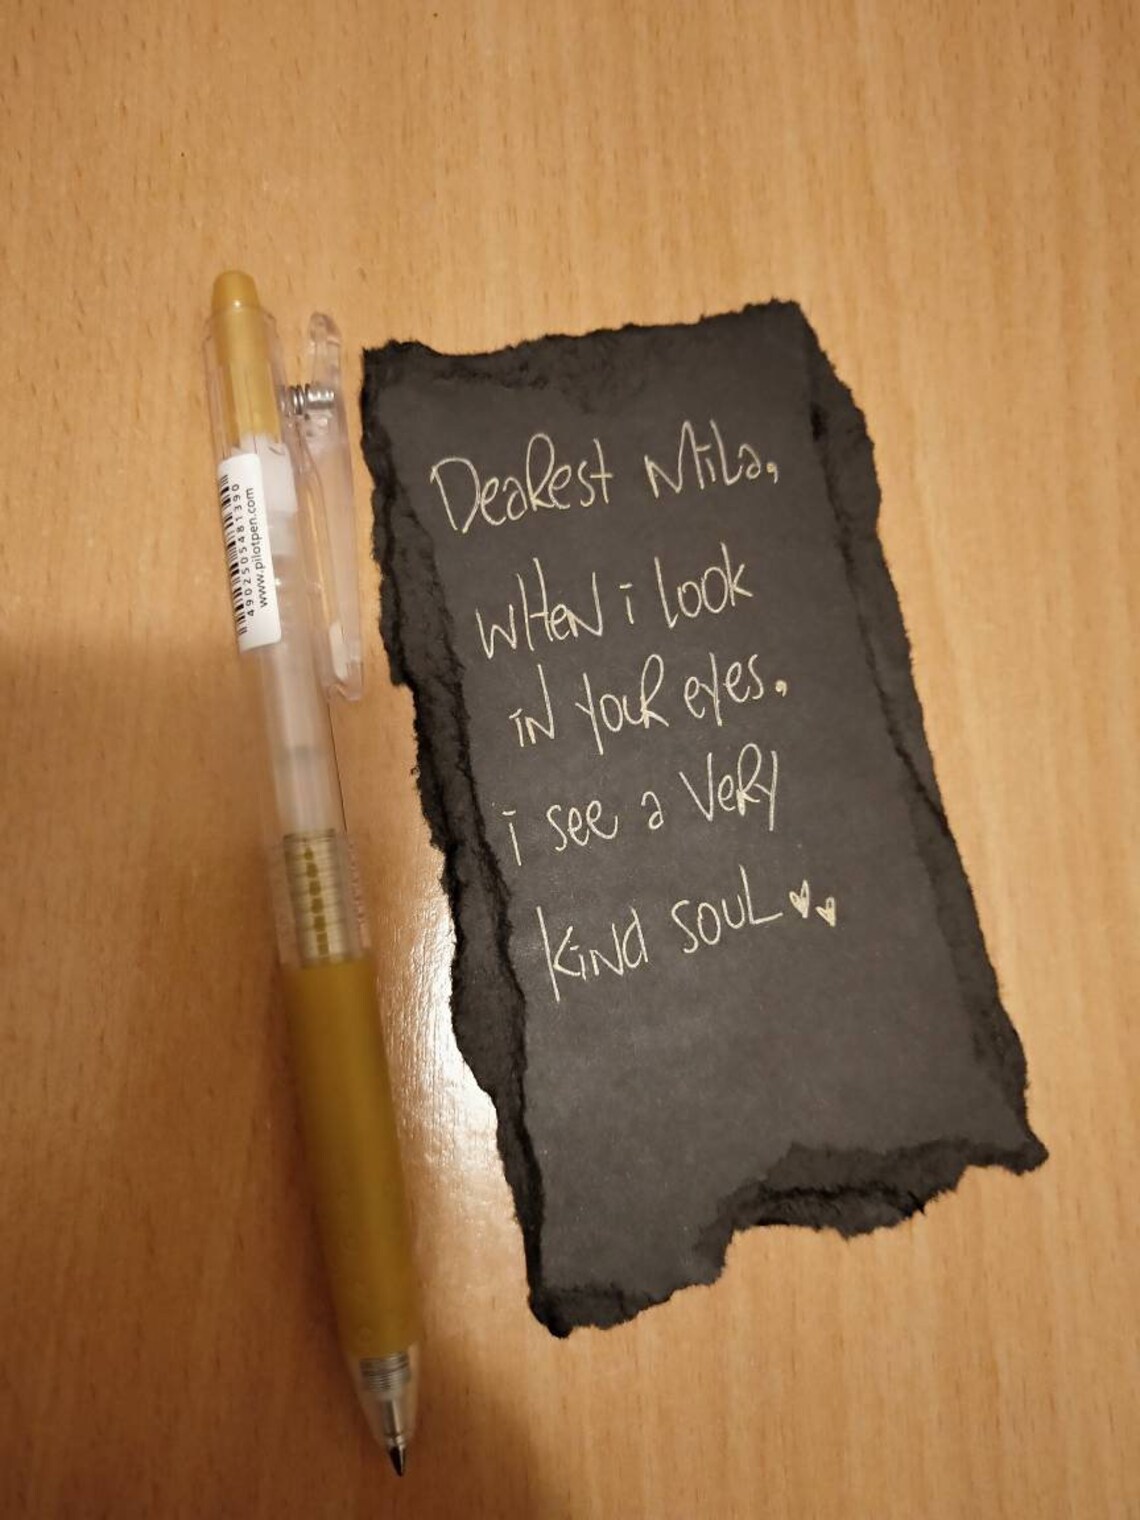 4902505481390
www.pilotpen.com
Dearest Mila,
when i look
in your eyes,
i see a very
kind soul